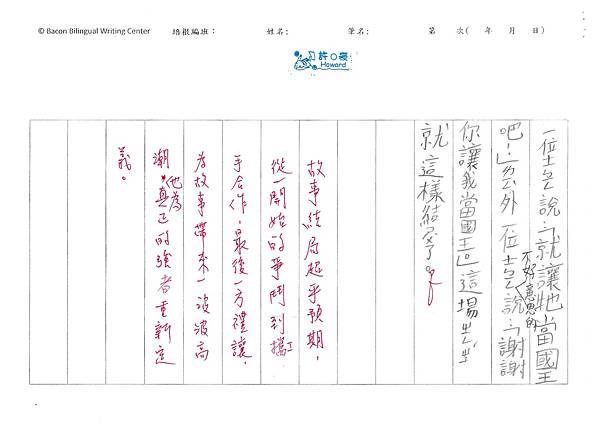 © Bacon Bilingual Writing Center 培根編班： 姓名: 筆名: 第 次( 年 月 日)
許○豪
Howard
一位ㄕˋ說：「就讓牠當國王
吧！」另外一位不好意思的說：「謝謝
你讓我當國王。」這場
就這樣結
故事結局超乎預期，
從一開始的爭鬥到攜
手合作，最後一方禮讓，
為故事帶來一波波高
潮。他為真正的強者重新定
義。